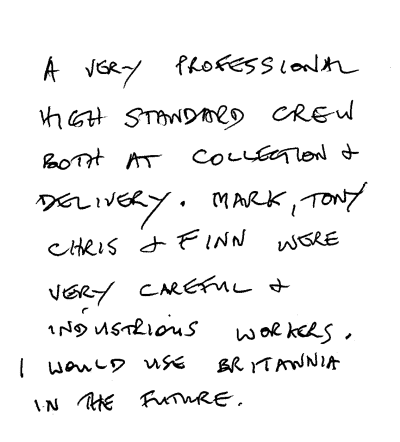 A VERY PROFESSIONAL
HIGH STANDARD CREW
BOTH AT COLLECTION &
DELIVERY. MARK, TONY
CHRIS & FINN WERE
VERY CAREFUL &
INDUSTRIOUS WORKERS.
I WOULD USE BRITANNIA
IN THE FUTURE.